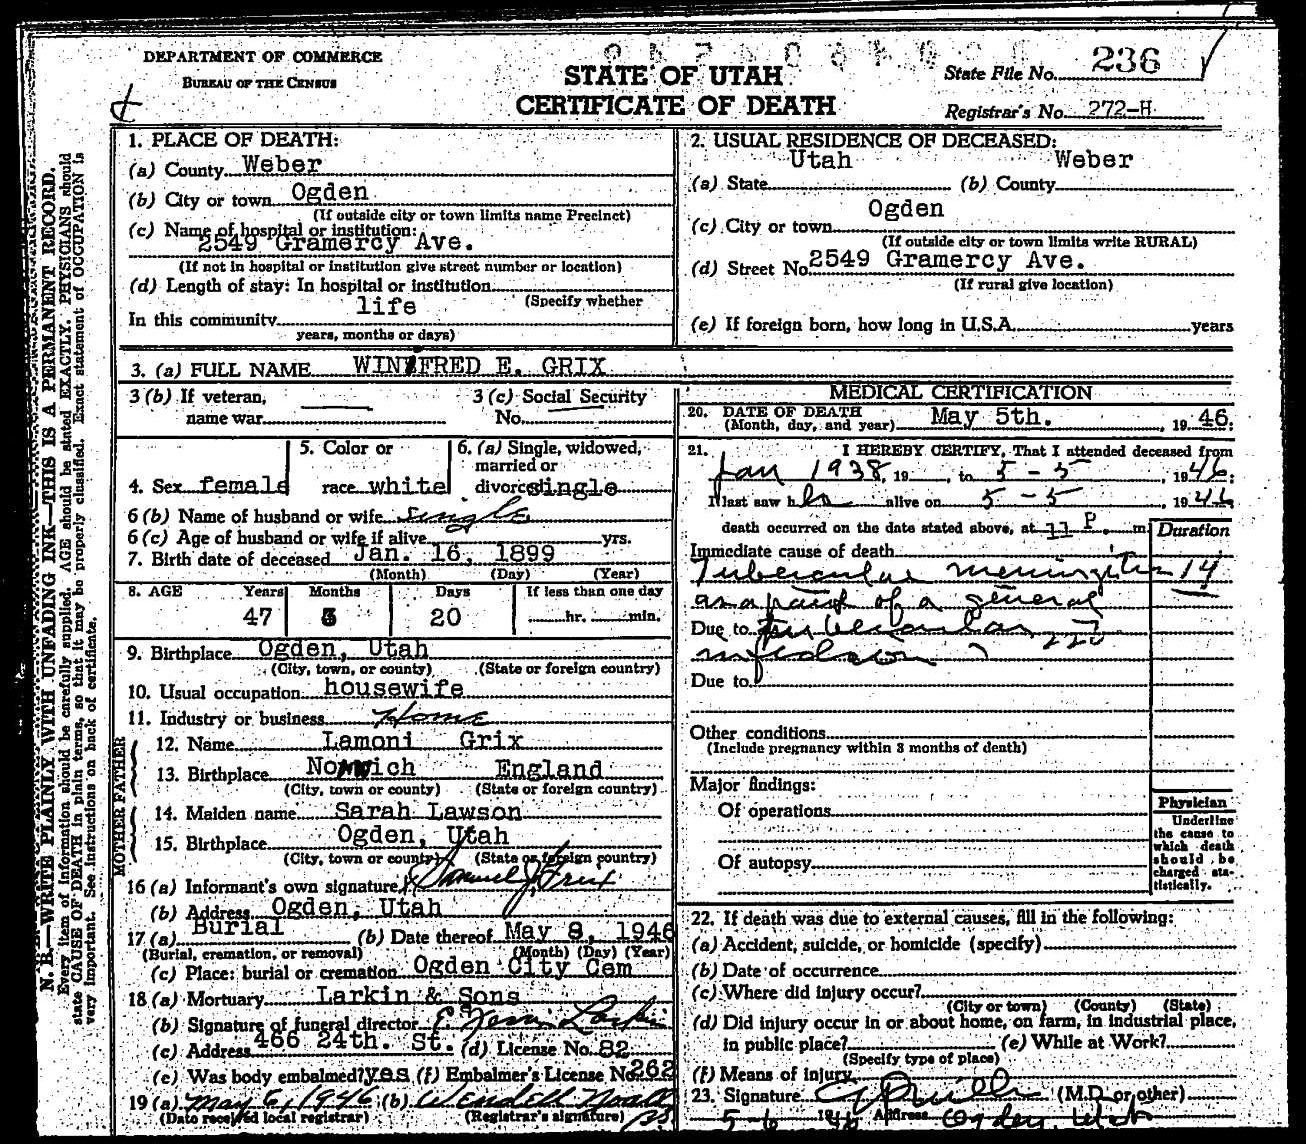 DEPARTMENT OF COMMERCE
BUREAU OF THE CENSUS
STATE OF UTAH
CERTIFICATE OF DEATH
State File No. 236
Registrar's No. 272-H
N. B.—WRITE PLAINLY WITH UNFADING INK—THIS IS A PERMANENT RECORD.
Every item of information should be carefully supplied. AGE should be stated EXACTLY. PHYSICIANS should
state CAUSE OF DEATH in plain terms, so that it may be properly classified. Exact statement of OCCUPATION is
very important. See instructions on back of certificate.
1. PLACE OF DEATH:
(a) County Weber
(b) City or town Ogden
(If outside city or town limits name Precinct)
(c) Name of hospital or institution:
2549 Gramercy Ave.
(If not in hospital or institution give street number or location)
(d) Length of stay: In hospital or institution
(Specify whether
In this community life
years, months or days)
2. USUAL RESIDENCE OF DECEASED:
(a) State Utah (b) County Weber
(c) City or town Ogden
(If outside city or town limits write RURAL)
(d) Street No. 2549 Gramercy Ave.
(If rural give location)
(e) If foreign born, how long in U.S.A. years
3. (a) FULL NAME WINIFRED E. GRIX
3 (b) If veteran,
name war
3 (c) Social Security
No.
4. Sex female
5. Color or
race white
6. (a) Single, widowed,
married or
divorced single
6 (b) Name of husband or wife single
6 (c) Age of husband or wife if alive yrs.
7. Birth date of deceased Jan. 16, 1899
(Month) (Day) (Year)
8. AGE Years Months Days If less than one day
47 3 20 hr. min.
9. Birthplace Ogden, Utah
(City, town, or county) (State or foreign country)
10. Usual occupation housewife
11. Industry or business Home
FATHER
12. Name Lamoni Grix
13. Birthplace Norwich England
(City, town or county) (State or foreign country)
MOTHER
14. Maiden name Sarah Lawson
15. Birthplace Ogden, Utah
(City, town or county) (State or foreign country)
16 (a) Informant's own signature Samuel J. Grix
(b) Address Ogden, Utah
17 (a) Burial (b) Date thereof May 8, 1946
(Burial, cremation, or removal) (Month) (Day) (Year)
(c) Place: burial or cremation Ogden City Cem
18 (a) Mortuary Larkin & Sons
(b) Signature of funeral director Larkin
(c) Address 466 24th. St. (d) License No. 82
(e) Was body embalmed? yes (f) Embalmer's License No. 262
19 (a) May 6, 1946 (b) Wendell Noall
(Date received local registrar) (Registrar's signature)
MEDICAL CERTIFICATION
20. DATE OF DEATH
(Month, day, and year) May 5th. , 19 46.
21. I HEREBY CERTIFY, That I attended deceased from
Jan 1938, 19 , to 5-5 , 19 46;
I last saw her alive on 5-5 , 19 46
death occurred on the date stated above, at 11 P. m.
Duration
Immediate cause of death
Tubercular meningitis 14
as a part of a general
Due to tubercular
infection
Due to
Other conditions
(Include pregnancy within 3 months of death)
Major findings:
Of operations
Of autopsy
Physician
Underline
the cause to
which death
should be
charged sta-
tistically.
22. If death was due to external causes, fill in the following:
(a) Accident, suicide, or homicide (specify)
(b) Date of occurrence
(c) Where did injury occur?
(City or town) (County) (State)
(d) Did injury occur in or about home, on farm, in industrial place,
in public place? (e) While at Work?
(Specify type of place)
(f) Means of injury
23. Signature (M.D. or other)
5-6 1946 Address Ogden, Utah